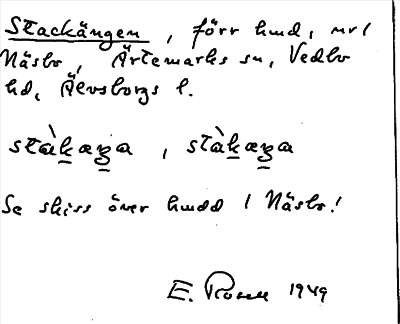 Stackängen, förr hmd, nr 1
Näsbo, Ärtemarks sn, Vedbo
hd, Älvsborgs l.
stàkæŋa, stàkæŋa
Se skiss över hmdd 1 Näsbo!
E. Rosell 1949